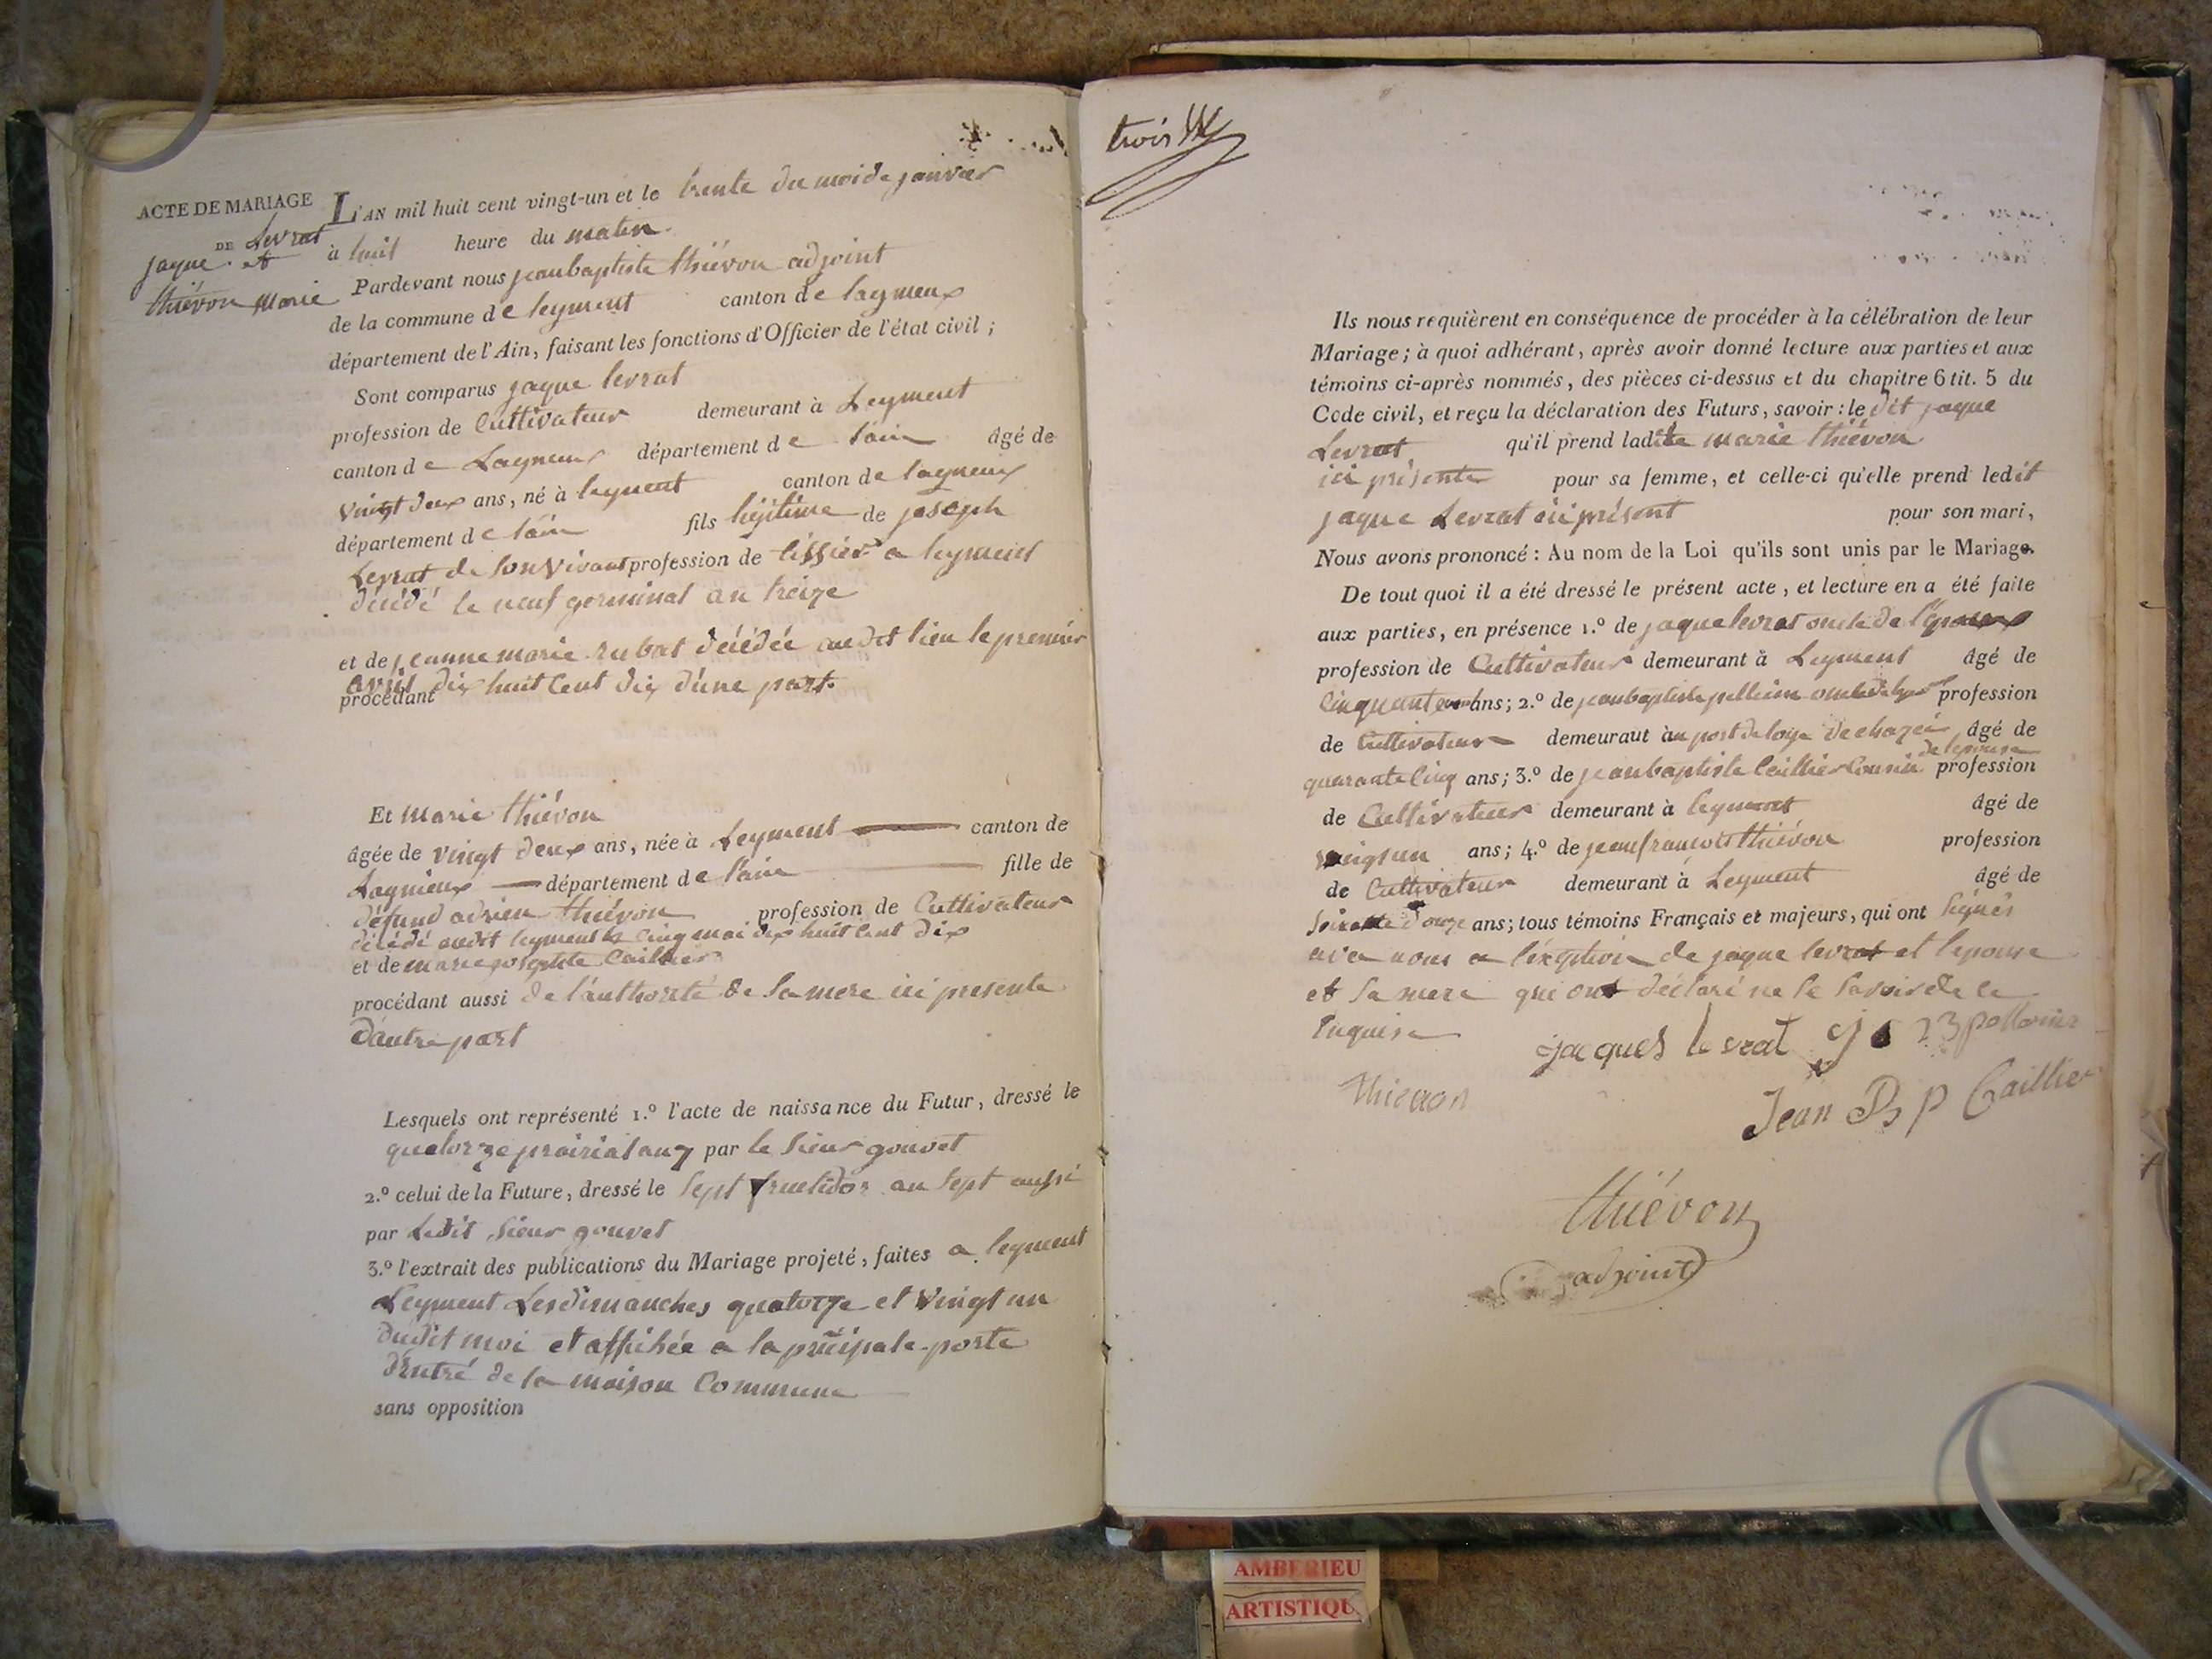 ACTE DE MARIAGE
DE Levrat
jaque et
thiévon Marie
L'AN mil huit cent vingt-un et le trente du moi de janvier
à huit heure du matin
Pardevant nous jeanbaptiste thiévon adjoint
de la commune de leyment canton de lagnieux
département de l'Ain, faisant les fonctions d'Officier de l'état civil ;
Sont comparus jaque levrat
profession de Cultivateur demeurant à Leyment
canton de Lagnieux département de l'ain âgé de
vingt deux ans, né à leyment canton de lagnieux
département de l'ain fils légitime de joseph
Levrat de son vivant profession de tissier a leyment
décédé le neuf germinal an treize
et de jeanne marie rubat décédée audit lieu le premier
avril dix huit cent dix d'une part
procédant
Et Marie thiévon
âgée de vingt deux ans, née à Leyment canton de
Lagnieux département de l'ain fille de
défund adrien thiévon profession de Cultivateur
décédé audit leyment le cinq mai dix huit cent dix
et de marie josephte Caillier
procédant aussi de l'authorité de sa mere ici presente
d'autre part
Lesquels ont représenté 1.º l'acte de naissance du Futur, dressé le
quatorze prairial an 7 par le sieur gouvet
2.º celui de la Future, dressé le sept fructidor an sept aussi
par Ledit sieur gouvet
3.º l'extrait des publications du Mariage projeté, faites a leyment
Leyment Les dimanches quatorze et vingt un
dudit moi et affichée a la principale porte
d'entré de la maison Commune
sans opposition
trois
Ils nous requièrent en conséquence de procéder à la célébration de leur
Mariage ; à quoi adhérant, après avoir donné lecture aux parties et aux
témoins ci-après nommés, des pièces ci-dessus et du chapitre 6 tit. 5 du
Code civil, et reçu la déclaration des Futurs, savoir : le dit jaque
Levrat qu'il prend ladite marie thiévon
ici présente pour sa femme, et celle-ci qu'elle prend ledit
jaque Levrat ici présent pour son mari,
Nous avons prononcé : Au nom de la Loi qu'ils sont unis par le Mariage.
De tout quoi il a été dressé le présent acte, et lecture en a été faite
aux parties, en présence 1.º de jaque levrat oncle de l'époux
profession de Cultivateur demeurant à Leyment âgé de
Cinquante ans ; 2.º de jeanbaptiste pellerin oncle profession
de Cultivateur demeurant à au port de loye de chazei âgé de
de lepouse
quarante cinq ans ; 3.º de jeanbaptiste Caillier Cousin profession
de Cultivateur demeurant à leyment âgé de
vingt un ans ; 4.º de jeanfrancois thiévon profession
de Cultivateur demeurant à Leyment âgé de
soixante douze ans ; tous témoins Français et majeurs, qui ont signés
avec nous a l'exception de jaque levrat et lepouse
et sa mere qui ont déclaré ne le savoir de ce
enquise
jacques levrat
thievon
Jean B p Caillier
thiévon
adjoint
AMBERIEU
ARTISTIQU